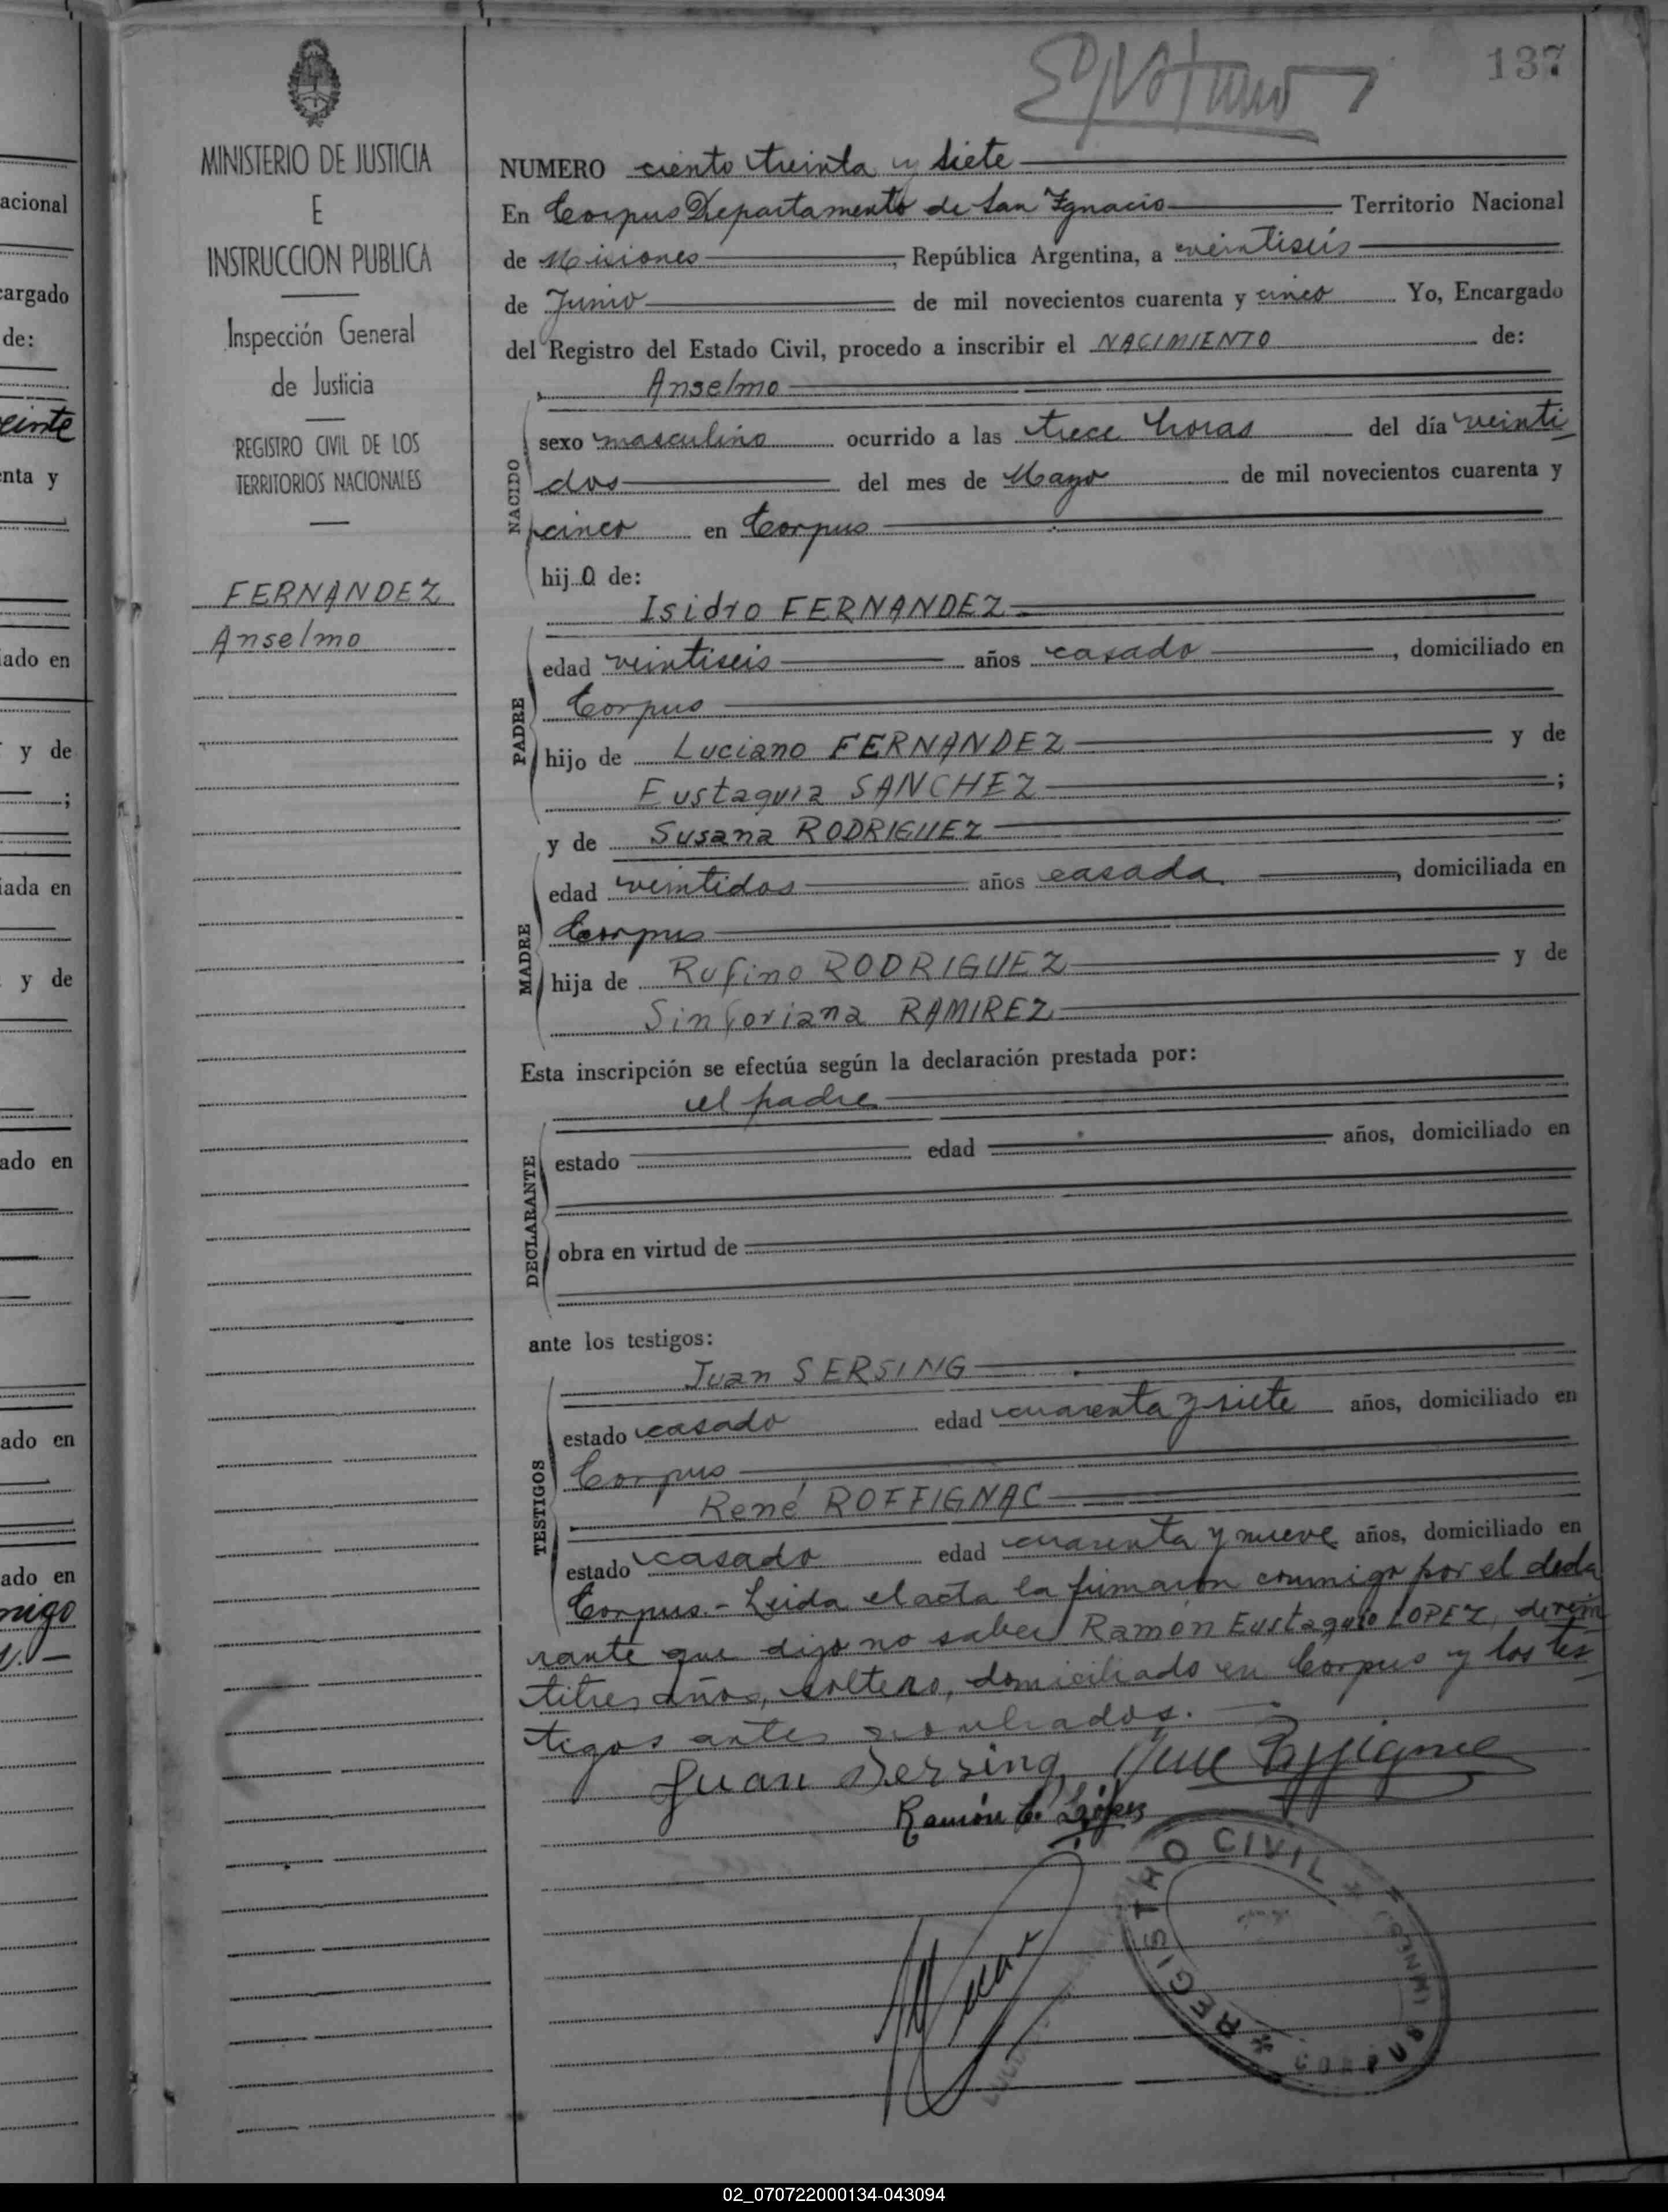 acional
cargado
de:
einte
nta y
iado en
y de
;
iada en
y de
ado en
ado en
ado en
migo
137
MINISTERIO DE JUSTICIA
E
INSTRUCCION PUBLICA
Inspección General
de Justicia
REGISTRO CIVIL DE LOS
TERRITORIOS NACIONALES
FERNANDEZ
Anselmo
NUMERO ciento treinta y siete
En Corpus Departamento de San Ignacio Territorio Nacional
de Misiones, República Argentina, a veintiseis
de Junio de mil novecientos cuarenta y cinco Yo, Encargado
del Registro del Estado Civil, procedo a inscribir el NACIMIENTO de:
Anselmo
NACIDO
sexo masculino ocurrido a las trece horas del día veinti
dos del mes de Mayo de mil novecientos cuarenta y
cinco en Corpus
hijo de:
Isidro FERNANDEZ
PADRE
edad veintiseis años casado, domiciliado en
Corpus
hijo de Luciano FERNANDEZ y de
Eustaquia SANCHEZ;
y de Susana RODRIGUEZ
MADRE
edad veintidos años casada, domiciliada en
Corpus
hija de Rufino RODRIGUEZ y de
Sinforiana RAMIREZ
Esta inscripción se efectúa según la declaración prestada por:
el padre
DECLARANTE
estado edad años, domiciliado en
obra en virtud de
ante los testigos:
Juan SERSING
TESTIGOS
estado casado edad cuarenta y siete años, domiciliado en
Corpus
René ROFFIGNAC
estado casado edad cuarenta y nueve años, domiciliado en
Corpus.- Leida el acta la firmaron conmigo por el decla
rante que dijo no saber Ramón Eustaquio LOPEZ, de vein
titres años, soltero, domiciliado en Corpus y los tes
tigos antes nombrados.
Juan Sersing
Ramón E. López
REGISTRO CIVIL
02_070722000134-043094